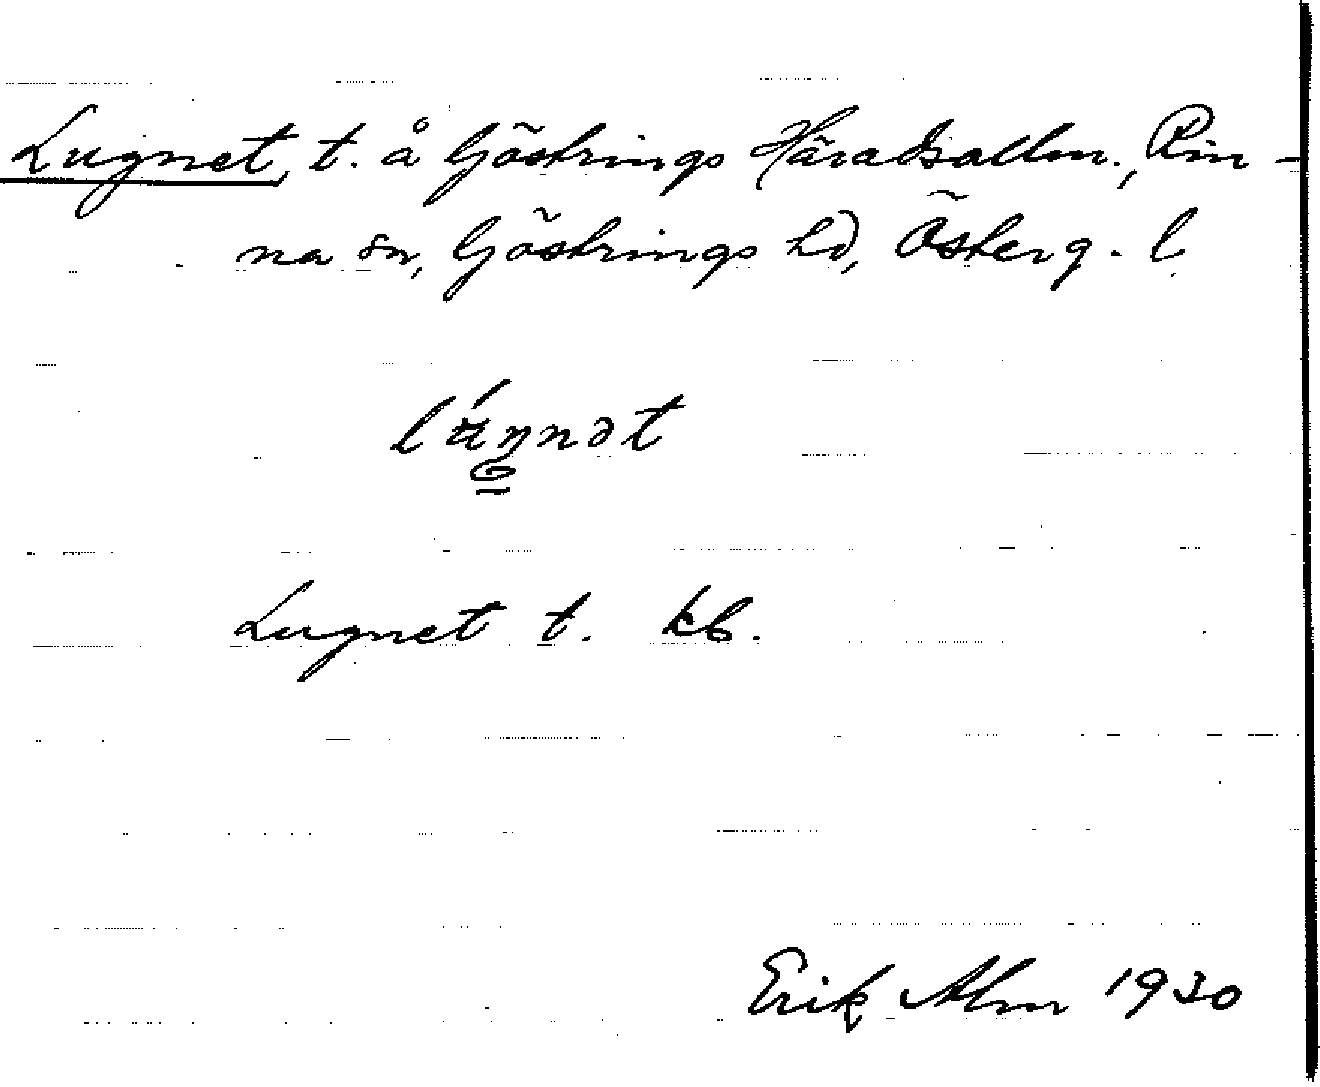 Lugnet, t. å Göstrings Häradsallm., Rin-
na sn, Göstrings hd, Österg. l
Lugnet t. kb.
Erik Alm 1930